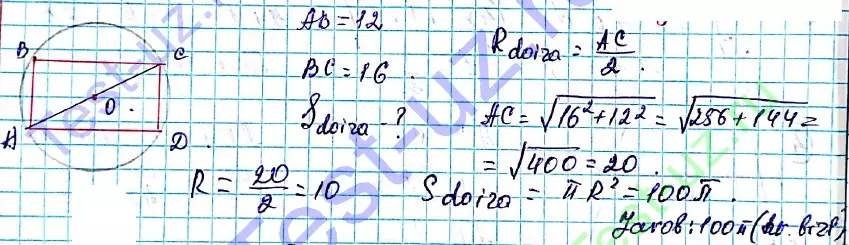 B
C
O
A
D
AB = 12
BC = 16
S doira - ?
R doira = AC/2
AC = √(16² + 12²) = √(256 + 144) =
= √400 = 20
R = 20/2 = 10
S doira = πR² = 100π
Javob: 100π (kv. brl)
Test-uz.ru